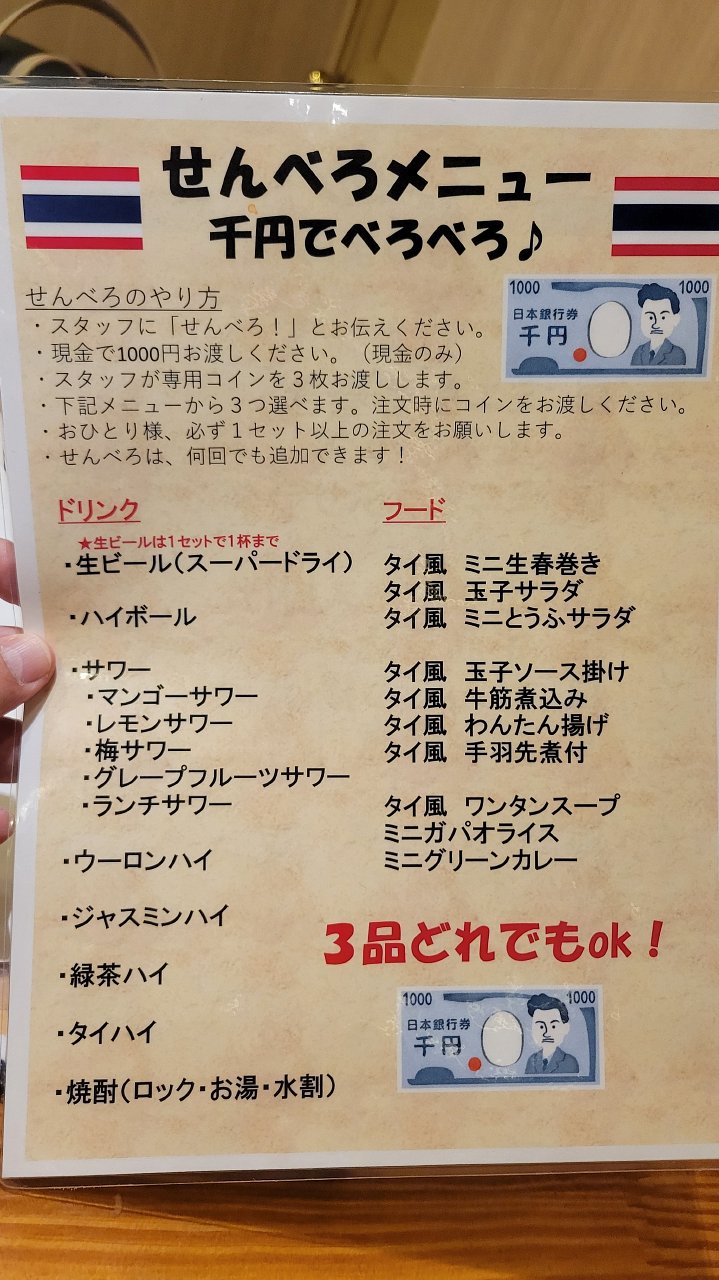 せんべろメニュー
千円でべろべろ♪
せんべろのやり方
1000 1000
日本銀行券
千円
・スタッフに「せんべろ！」とお伝えください。
・現金で1000円お渡しください。（現金のみ）
・スタッフが専用コインを３枚お渡しします。
・下記メニューから３つ選べます。注文時にコインをお渡しください。
・おひとり様、必ず１セット以上の注文をお願いします。
・せんべろは、何回でも追加できます！
ドリンク
★生ビールは1セットで1杯まで
・生ビール（スーパードライ）
・ハイボール
・サワー
・マンゴーサワー
・レモンサワー
・梅サワー
・グレープフルーツサワー
・ランチサワー
・ウーロンハイ
・ジャスミンハイ
・緑茶ハイ
・タイハイ
・焼酎（ロック・お湯・水割）
フード
タイ風 ミニ生春巻き
タイ風 玉子サラダ
タイ風 ミニとうふサラダ
タイ風 玉子ソース掛け
タイ風 牛筋煮込み
タイ風 わんたん揚げ
タイ風 手羽先煮付
タイ風 ワンタンスープ
ミニガパオライス
ミニグリーンカレー
３品どれでもok！
1000 1000
日本銀行券
千円